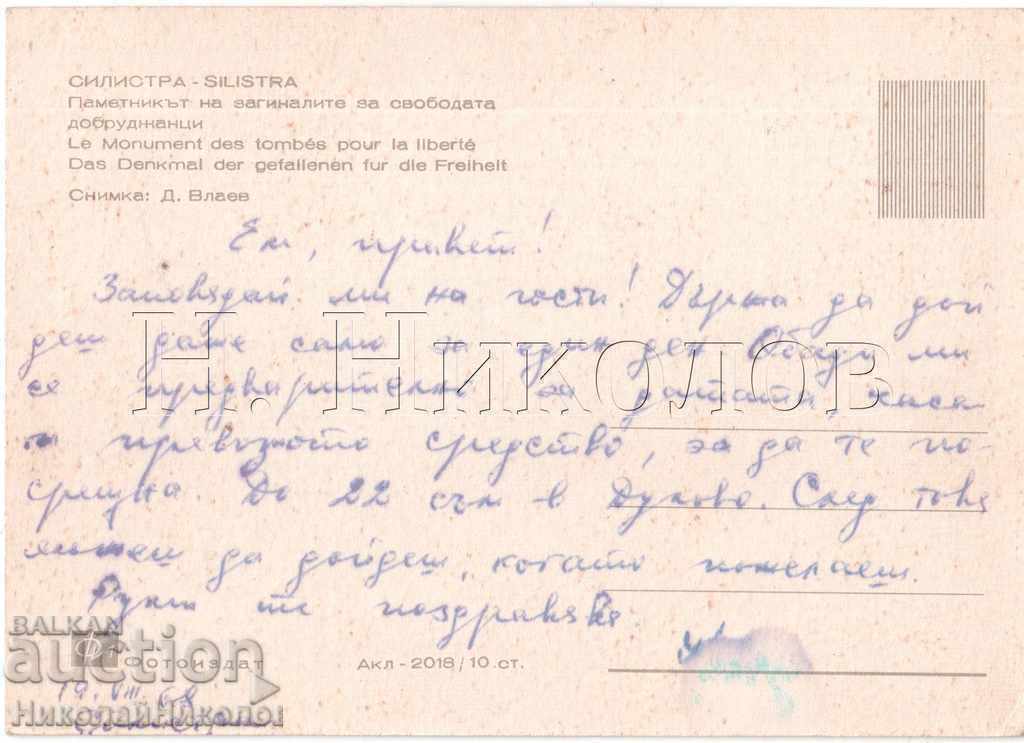 СИЛИСТРА - SILISTRA
Паметникът на загиналите за свободата
добруджанци
Le Monument des tombés pour la liberté
Das Denkmal der gefallenen fur die Freiheit
Снимка: Д. Влаев
Ем, привет!
Заповядай ми на гости! Държа да дой
деш даже само за един ден. Обади ми
се предварително за датата, часа
и превозното средство, за да те по-
срещна. До 22 съм в Дулово. След това
можеш да дойдеш, когато пожелаеш.
те поздравява
Н. НИКОЛОВ
BALKAN
auction
Фотоиздат
Акл-2018/10 ст.
19.VIII.68
НиколайНиколов